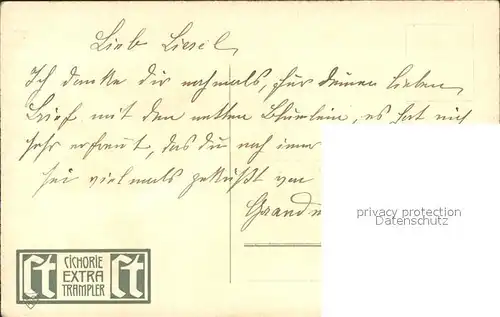 Lieb Liesel
Ich danke dir nochmals, für deinen lieben
Brief mit den netten Blümlein, es hat mich
sehr erfreut, das du noch immer
sei vielmals geküßt von
privacy protection
Datenschutz
CICHORIE
EXTRA
TRAMPLER
Ct
Ct